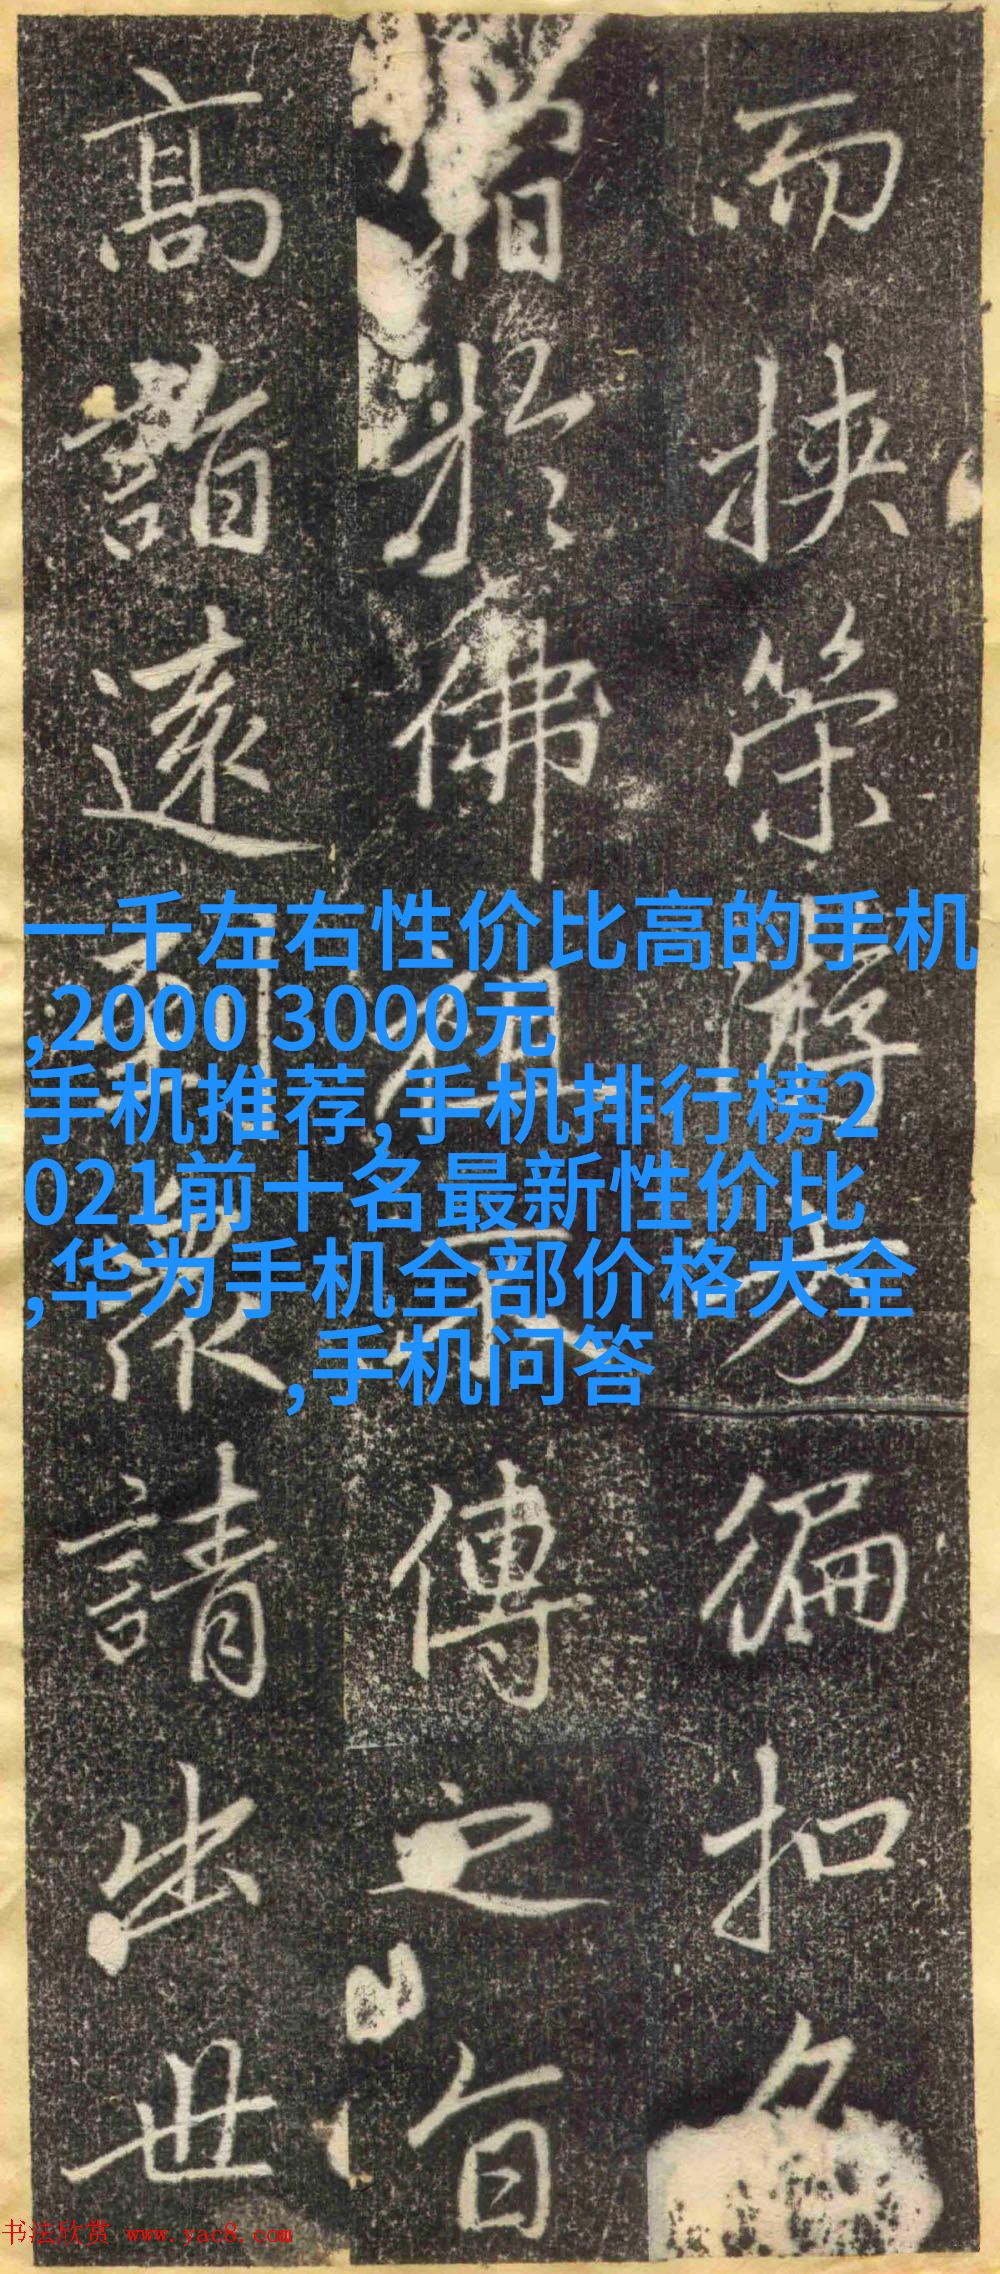 而挾策游方徧扣
於佛祖不傳之旨
高詣遠到衆請出世
一千左右性价比高的手机
,2000 3000元
手机推荐,手机排行榜2
021前十名最新性价比
,华为手机全部价格大全
,手机问答
书法欣赏 www.yac8.com